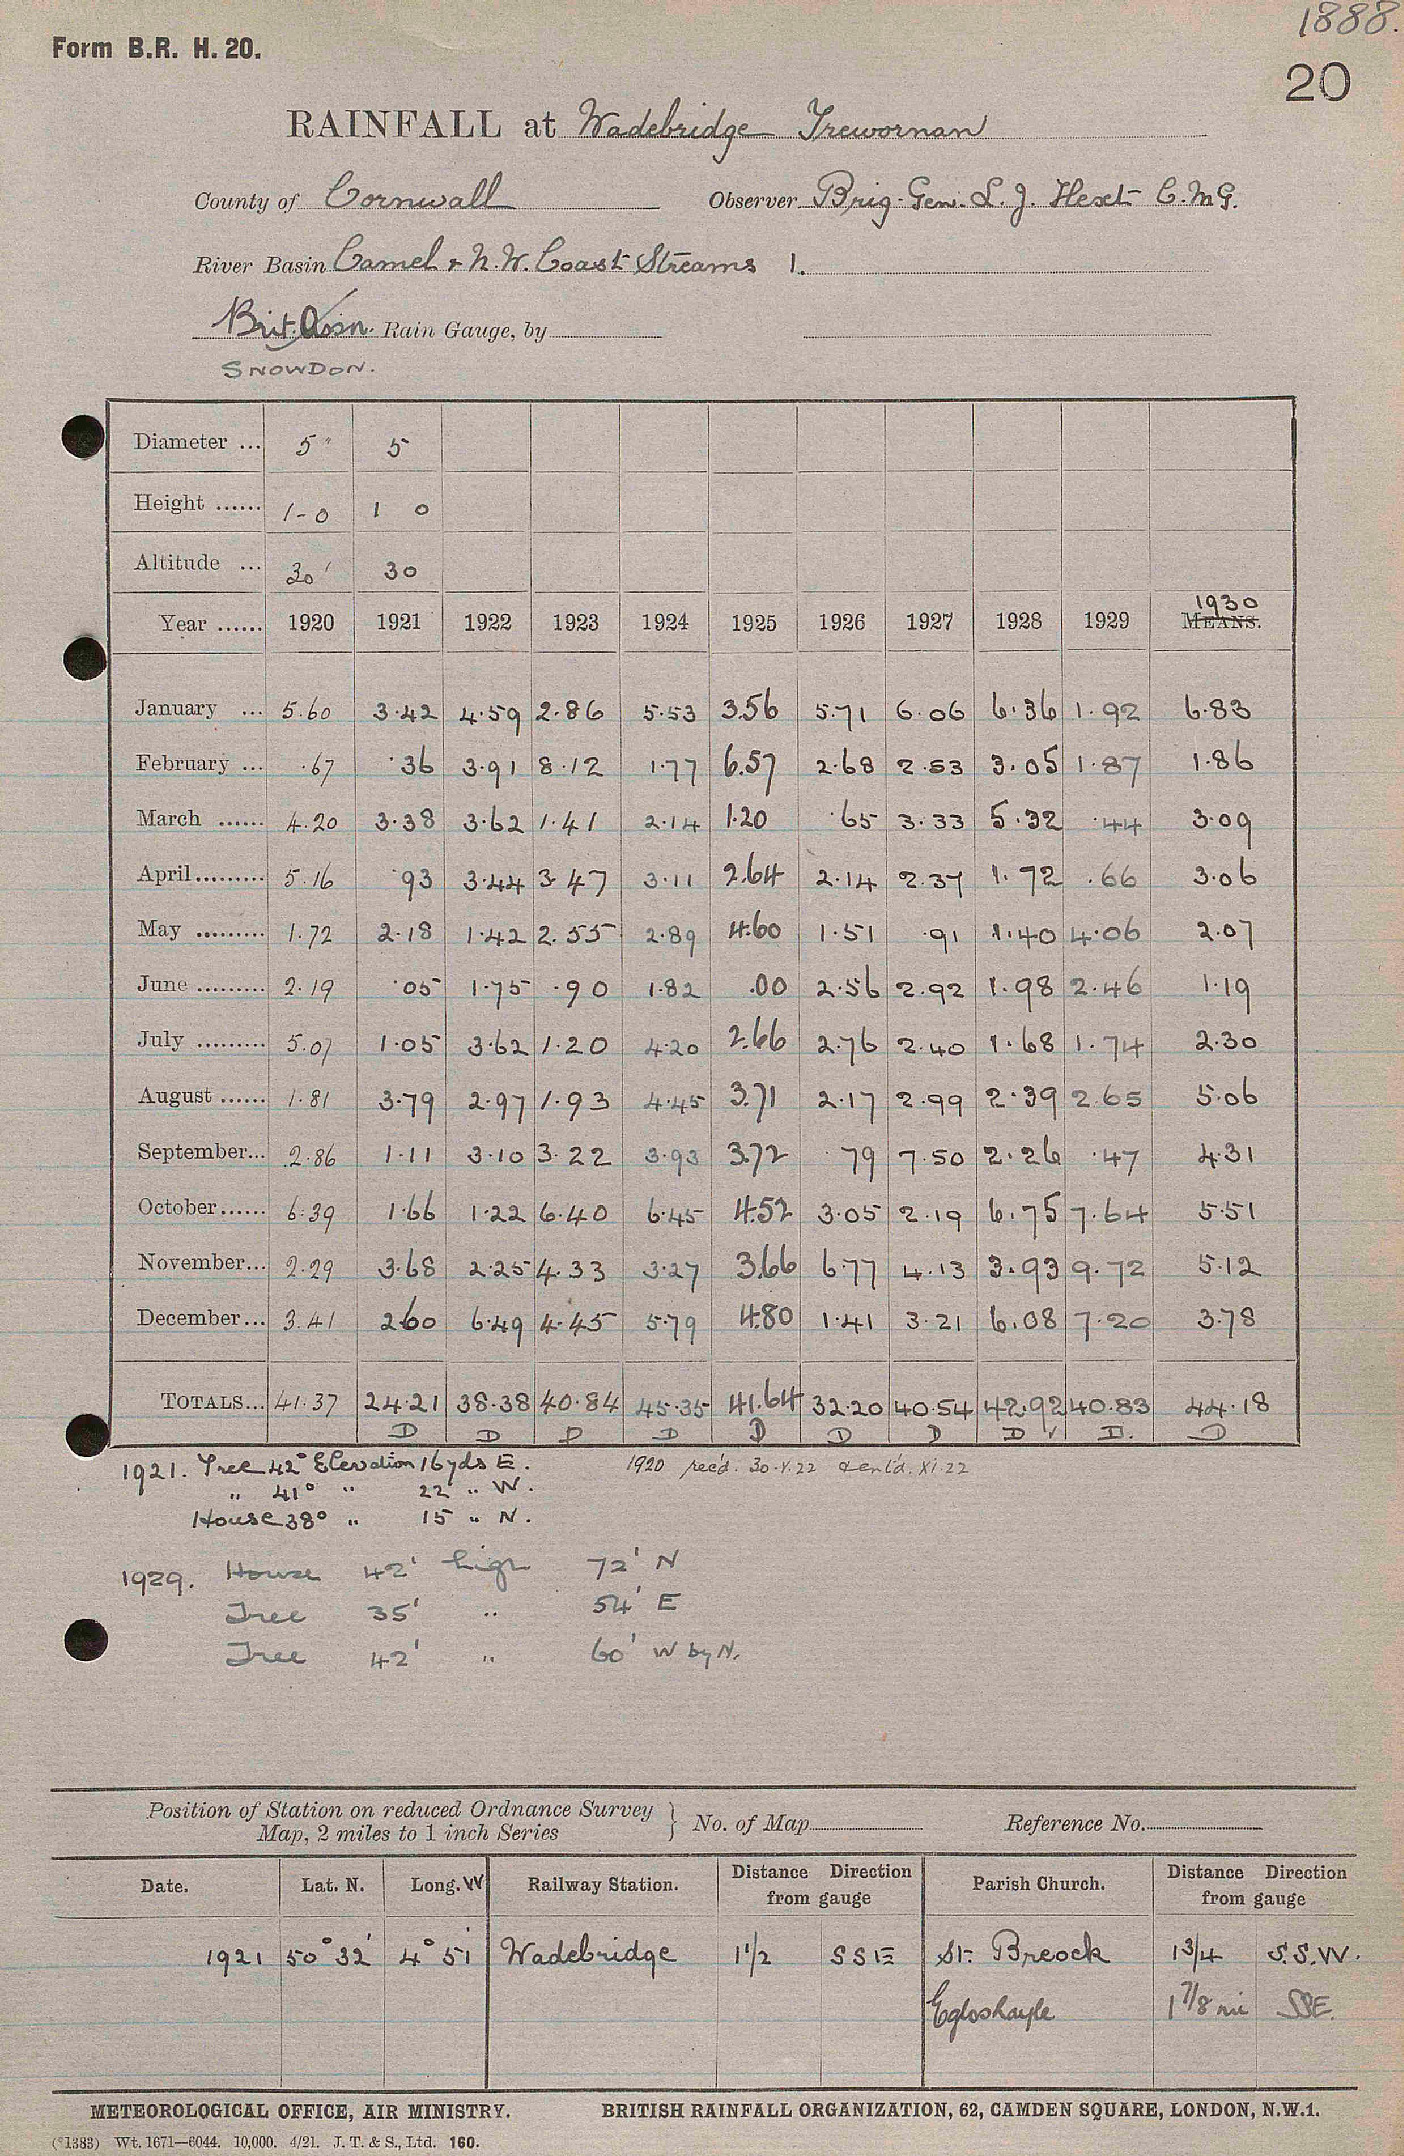 1888.
Form B.R. H. 20.
20
RAINFALL at Wadebridge Trewornan
County of Cornwall Observer Brig-Gen. L. J. Hext C.M.G.
River Basin Camel & N.W. Coast Streams 1.
Brit. Assn. Rain Gauge, by
SNOWDON.
Diameter ... 5" 5
Height ...... 1-0 1 0
Altitude ... 30' 30
1930
Year ...... 1920 1921 1922 1923 1924 1925 1926 1927 1928 1929 MEANS.
January ... 5.60 3.42 4.59 2.86 5.53 3.56 5.71 6.06 6.36 1.92 6.83
February ... .67 .36 3.91 8.12 1.77 6.57 2.68 2.53 3.05 1.87 1.86
March ...... 4.20 3.38 3.62 1.41 2.14 1.20 .65 3.33 5.32 .44 3.09
April......... 5.16 .93 3.44 3.47 3.11 2.64 2.14 2.37 1.72 .66 3.06
May ......... 1.72 2.18 1.42 2.55 2.89 4.60 1.51 .91 1.40 4.06 2.07
June ......... 2.19 .05 1.75 .90 1.82 .00 2.56 2.92 1.98 2.46 1.19
July ......... 5.07 1.05 3.62 1.20 4.20 2.66 2.76 2.40 1.68 1.74 2.30
August ...... 1.81 3.79 2.97 1.93 4.45 3.71 2.17 2.99 2.39 2.65 5.06
September... 2.86 1.11 3.10 3.22 3.93 3.72 .79 7.50 2.26 .47 4.31
October...... 6.39 1.66 1.22 6.40 6.45 4.52 3.05 2.19 6.75 7.64 5.51
November... 2.29 3.68 2.25 4.33 3.27 3.66 6.77 4.13 3.93 9.72 5.12
December... 3.41 2.60 6.49 4.45 5.79 4.80 1.41 3.21 6.08 7.20 3.78
TOTALS... 41.37 24.21 38.38 40.84 45.35 41.64 32.20 40.54 42.92 40.83 44.18
D D D D D D D D ✓ D. D
1921. Tree 42° Elevation 16 yds E. 1920 rec'd. 30.X.22 & ent'd. XI.22
" 41° " 22 " W.
House 38° " 15 " N.
1929. House 42' high 72' N
Tree 35' " 54' E
Tree 42' " 60' W by N.
Position of Station on reduced Ordnance Survey
Map, 2 miles to 1 inch Series } No. of Map Reference No.
Date. Lat. N. Long. W Railway Station. Distance Direction from gauge Parish Church. Distance Direction from gauge
1921 50° 32' 4° 51' Wadebridge 1 1/2 SSE St. Breock 1 3/4 S.S.W.
Egloshayle 1 7/8 mi SSE.
METEOROLOGICAL OFFICE, AIR MINISTRY. BRITISH RAINFALL ORGANIZATION, 62, CAMDEN SQUARE, LONDON, N.W.1.
(*1383) Wt. 1671—6044. 10,000. 4/21. J. T. & S., Ltd. 160.